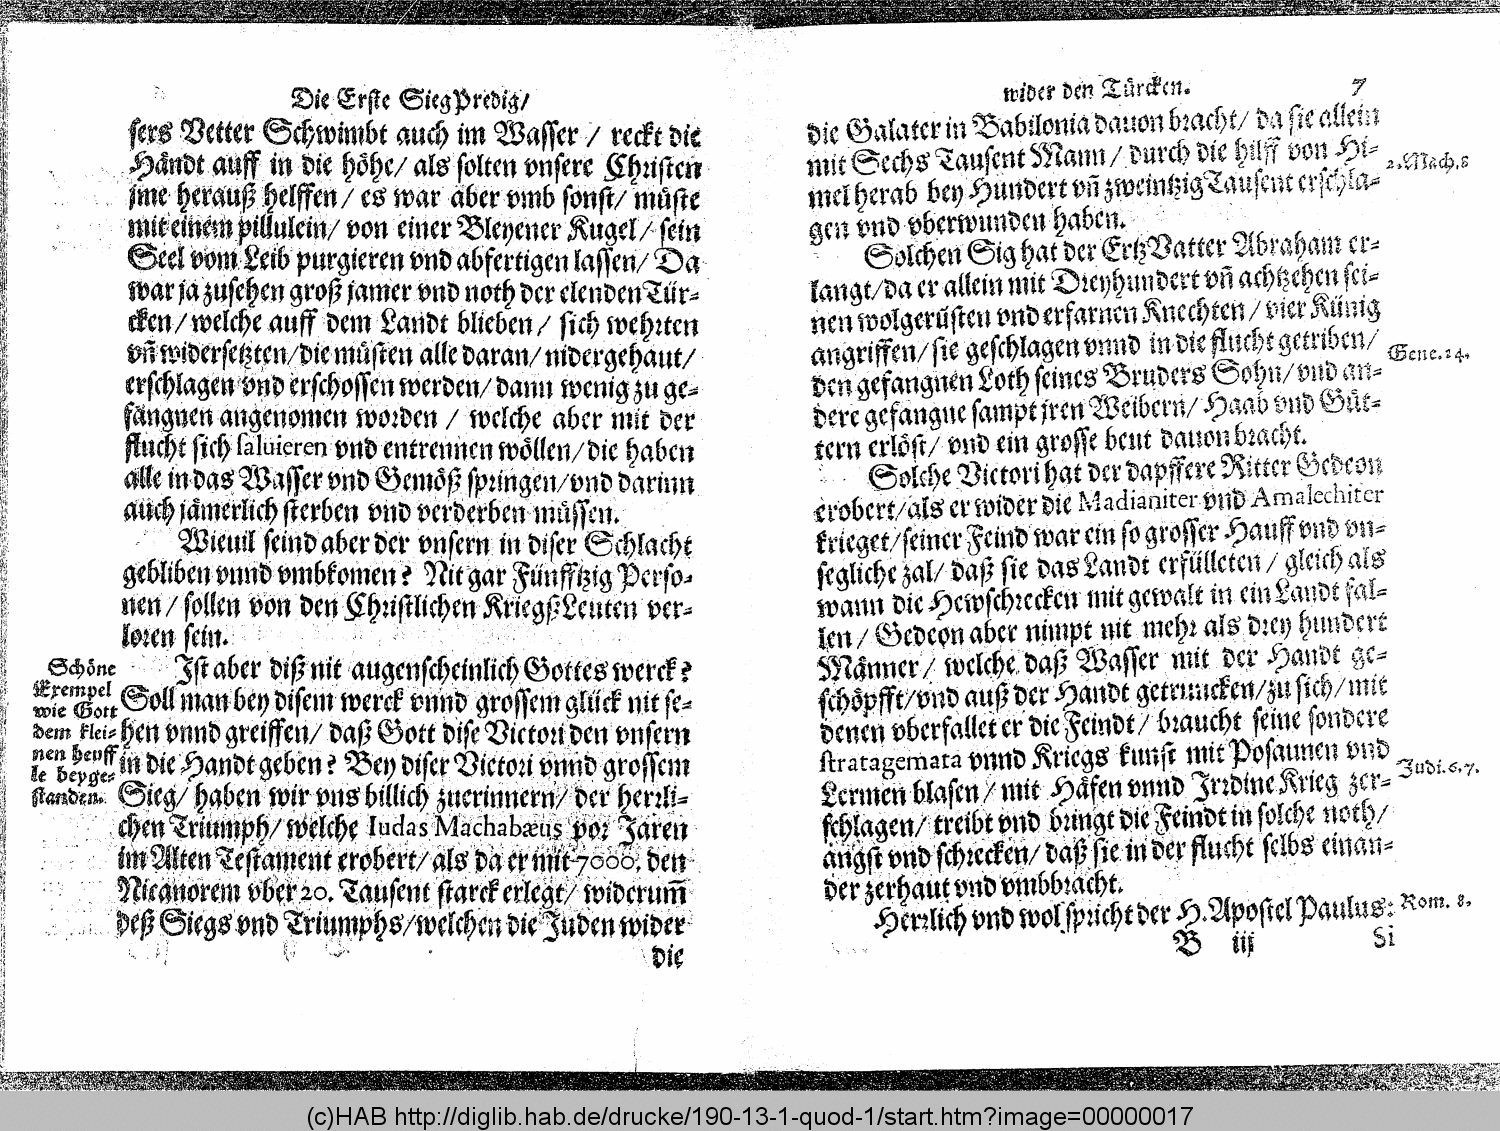 Die Erste SiegPredig/
sers Vetter Schwimbt auch im Wasser / reckt die
Händt auff in die höhe/ als solten vnsere Christen
jme herauß helffen / es war aber vmb sonst/ müste
mit einem pillulein/ von einer Bleyener Kugel/ sein
Seel vom Leib purgieren vnd abfertigen lassen/ Da
war ja zusehen groß jamer vnd noth der elenden Tür-
cken / welche auff dem Landt blieben / sich wehrten
vñ widersetzten/ die müsten alle daran/ nidergehaut/
erschlagen vnd erschossen werden/ dann wenig zu ge-
fangnen angenomen worden / welche aber mit der
flucht sich saluieren vnd entrennen wöllen/ die haben
alle in das Wasser vnd Gemöß springen/ vnd darinn
auch jämerlich sterben vnd verderben müssen.
Wieuil seind aber der vnsern in diser Schlacht
gebliben vnnd vmbkomen? Nit gar Fünfftzig Perso-
nen / sollen von den Christlichen KriegßLeuten ver-
loren sein.
Ist aber diß nit augenscheinlich Gottes werck?
Soll man bey disem werck vnnd grossem glück nit se-
hen vnnd greiffen/ daß Gott dise Victori den vnsern
in die Handt geben? Bey diser Victori vnnd grossem
Sieg/ haben wir vns billich zuerinnern/ der herrli-
chen Triumph/ welche Iudas Machabæus vor Jaren
im Alten Testament erobert/ als da er mit 7000. den
Nicanorem vber 20. Tausent starck erlegt/ widerum̃
deß Siegs vnd Triumphs/ welchen die Juden wider
die
Schöne
Exempel
wie Gott
dem klei-
nen heuff
le beyge-
standen.
wider den Türcken. 7
die Galater in Babilonia dauon bracht/ da sie allein
mit Sechs Tausent Mann / durch die hilff von Hi-
mel herab bey Hundert vñ zweintzig Tausent erschla-
gen vnd vberwunden haben.
Solchen Sig hat der ErtzVatter Abraham er-
langt/ da er allein mit Dreyhundert vñ achtzehen sei-
nen wolgerüsten vnd erfarnen Knechten / vier Künig
angriffen/ sie geschlagen vnnd in die flucht getriben/
den gefangnen Loth seines Bruders Sohn/ vnd an-
dere gefangne sampt jren Weibern/ Haab vnd Güt-
tern erlöst/ vnd ein grosse beut dauon bracht.
Solche Victori hat der dapffere Ritter Gedeon
erobert/ als er wider die Madianiter vnd Amalechiter
krieget/ seiner Feind war ein so grosser Hauff vnd vn-
segliche zal/ daß sie das Landt erfülleten / gleich als
wann die Hewschrecken mit gewalt in ein Landt fal-
len / Gedeon aber nimpt nit mehr als drey hundert
Männer / welche daß Wasser mit der Handt ge-
schöpfft/ vnd auß der Handt getruncken/ zu sich/ mit
denen vberfallet er die Feindt / braucht seine sondere
stratagemata vnnd Kriegs kunst mit Posaunen vnd
Lermen blasen / mit Häfen vnnd Irrdine Krieg zer-
schlagen/ treibt vnd bringt die Feindt in solche noth/
angst vnd schrecken/ daß sie in der flucht selbs einan-
der zerhaut vnd vmbbracht.
Herrlich vnd wol spricht der H. Apostel Paulus:
B iij Si
2. Mach. 8
Gene. 14.
Judi. 6. 7.
Rom. 8.
(c)HAB http://diglib.hab.de/drucke/190-13-1-quod-1/start.htm?image=00000017